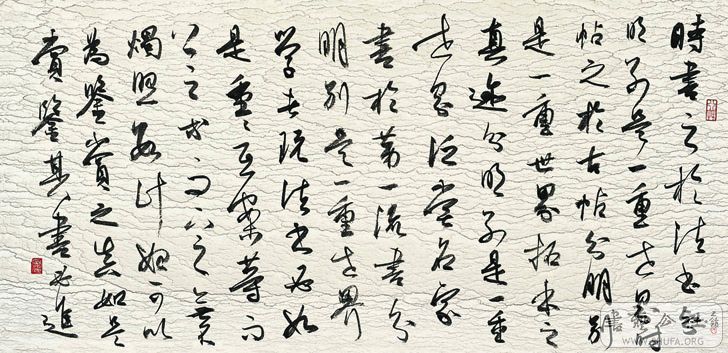 時書之於法書分
明別是一重世界時
帖之於古帖分明別
是一重世界拓本之
真迹分明別是一重
世界泛常名家
書於第一流書分
明別是一重世界
學者玩法書必如
是重重互等而
上之而下之
燭照數計可以
為鑒賞之真如是
賞鑒其書必進
WWW.SHUFA.ORG